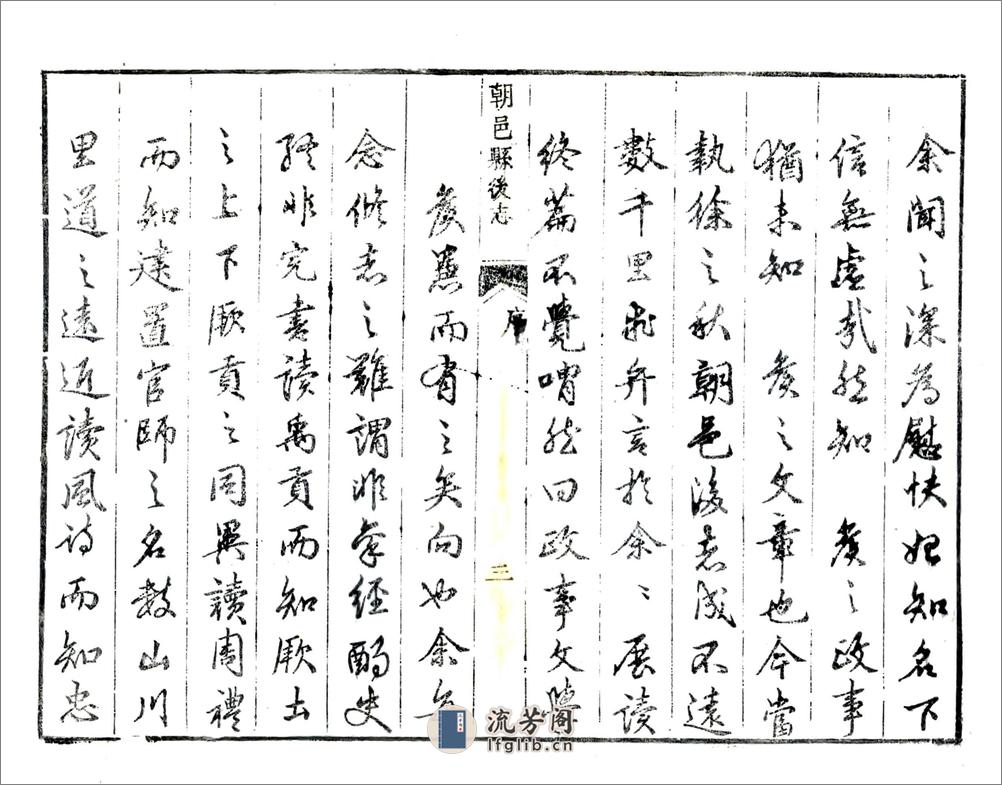 余聞之深為慰快始知名下
信無虛哉然知　侯之政事
猶未知　侯之文章也今當
執徐之秋朝邑後志成不遠
數千里乖弁言於余〻展讀
終篇不覺喟然曰政事文章
朝邑縣後志
序
三
侯兼而有之矣向也余每
念修志之難謂非牽經酌史
終非完書讀禹貢而知厥土
之上下厥貢之同異讀周禮
而知建置官師之名數山川
里道之遠近讀風詩而知忠
流芳阁
lfglib.cn